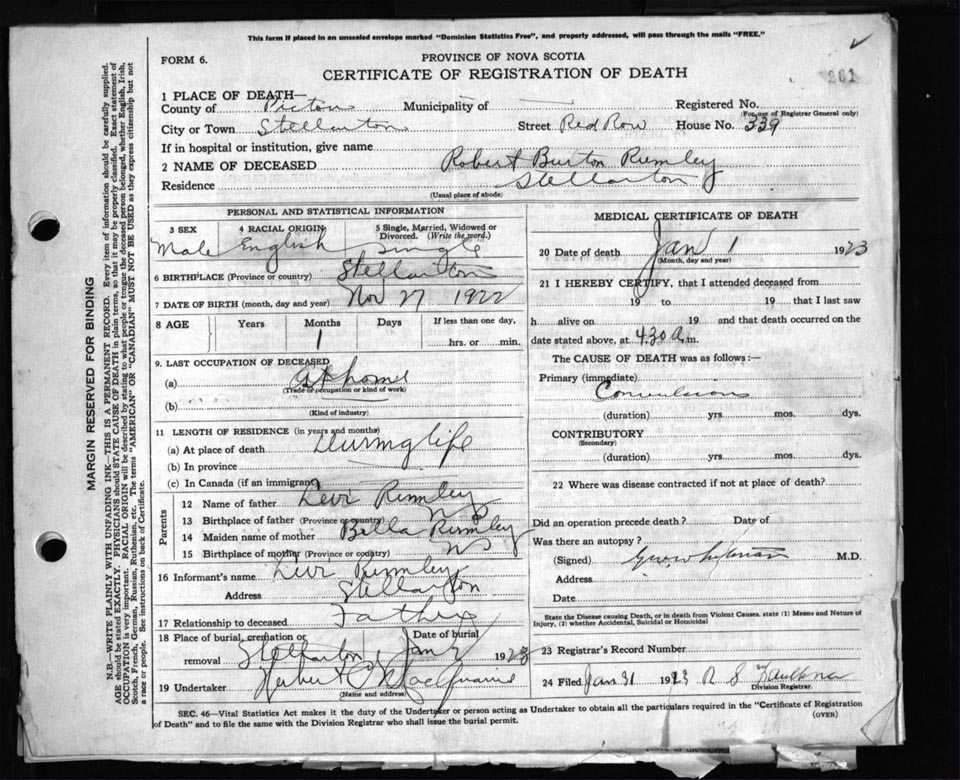 This form if placed in an unsealed envelope marked "Dominion Statistics Free", and properly addressed, will pass through the mails "FREE."
FORM 6.
PROVINCE OF NOVA SCOTIA
CERTIFICATE OF REGISTRATION OF DEATH
1 PLACE OF DEATH—
County of Pictou Municipality of Registered No.
(For use of Registrar General only)
City or Town Stellarton Street Red Row House No. 339
If in hospital or institution, give name
2 NAME OF DECEASED Robert Burton Rumley
Residence Stellarton
(Usual place of abode)
PERSONAL AND STATISTICAL INFORMATION
3 SEX 4 RACIAL ORIGIN 5 Single, Married, Widowed or Divorced. (Write the word.)
Male English Single
6 BIRTHPLACE (Province or country) Stellarton
7 DATE OF BIRTH (month, day and year) Nov 27 1922
8 AGE Years Months Days If less than one day,
1 hrs. or min.
9. LAST OCCUPATION OF DECEASED
(a) At home
(Trade or occupation or kind of work)
(b)
(Kind of industry)
11 LENGTH OF RESIDENCE (in years and months)
(a) At place of death During life
(b) In province
(c) In Canada (if an immigrant)
Parents
12 Name of father Levi Rumley
13 Birthplace of father (Province or country) N S
14 Maiden name of mother Bella Rumley
15 Birthplace of mother (Province or country) N S
16 Informant's name Levi Rumley
Address Stellarton
17 Relationship to deceased Father
18 Place of burial, cremation or removal Stellarton Date of burial Jan 2 1923
19 Undertaker Herbert
(Name and address)
MEDICAL CERTIFICATE OF DEATH
20 Date of death Jan 1 1923
(Month, day and year)
21 I HEREBY CERTIFY, that I attended deceased from
19 to 19 that I last saw
h alive on 19 and that death occurred on the
date stated above, at 4.30 A.m.
The CAUSE OF DEATH was as follows:—
Primary (immediate)
Convulsions
(duration) yrs. mos. dys.
CONTRIBUTORY
(Secondary)
(duration) yrs. mos. dys.
22 Where was disease contracted if not at place of death?
Did an operation precede death? Date of
Was there an autopsy?
(Signed) M.D.
Address
Date
State the Disease causing Death, or in death from Violent Causes, state (1) Means and Nature of Injury, (2) whether Accidental, Suicidal or Homicidal
23 Registrar's Record Number
24 Filed Jan. 31 1923 R S Faulkner
Division Registrar.
SEC. 46—Vital Statistics Act makes it the duty of the Undertaker or person acting as Undertaker to obtain all the particulars required in the "Certificate of Registration
of Death" and to file the same with the Division Registrar who shall issue the burial permit.
(OVER)
MARGIN RESERVED FOR BINDING
N.B.—WRITE PLAINLY WITH UNFADING INK—THIS IS A PERMANENT RECORD. Every item of information should be carefully supplied.
AGE should be stated EXACTLY. PHYSICIANS should STATE CAUSE OF DEATH in plain terms, so that it may be properly classified. Exact statement of
OCCUPATION is very important. RACIAL ORIGIN will be described by stating to what people or tongue the deceased person belonged, whether English, Irish,
Scotch, French, German, Russian, Ruthenian, etc. The terms "AMERICAN" or "CANADIAN" MUST NOT BE USED as they express citizenship but not
a race or people. See instructions on back of Certificate.